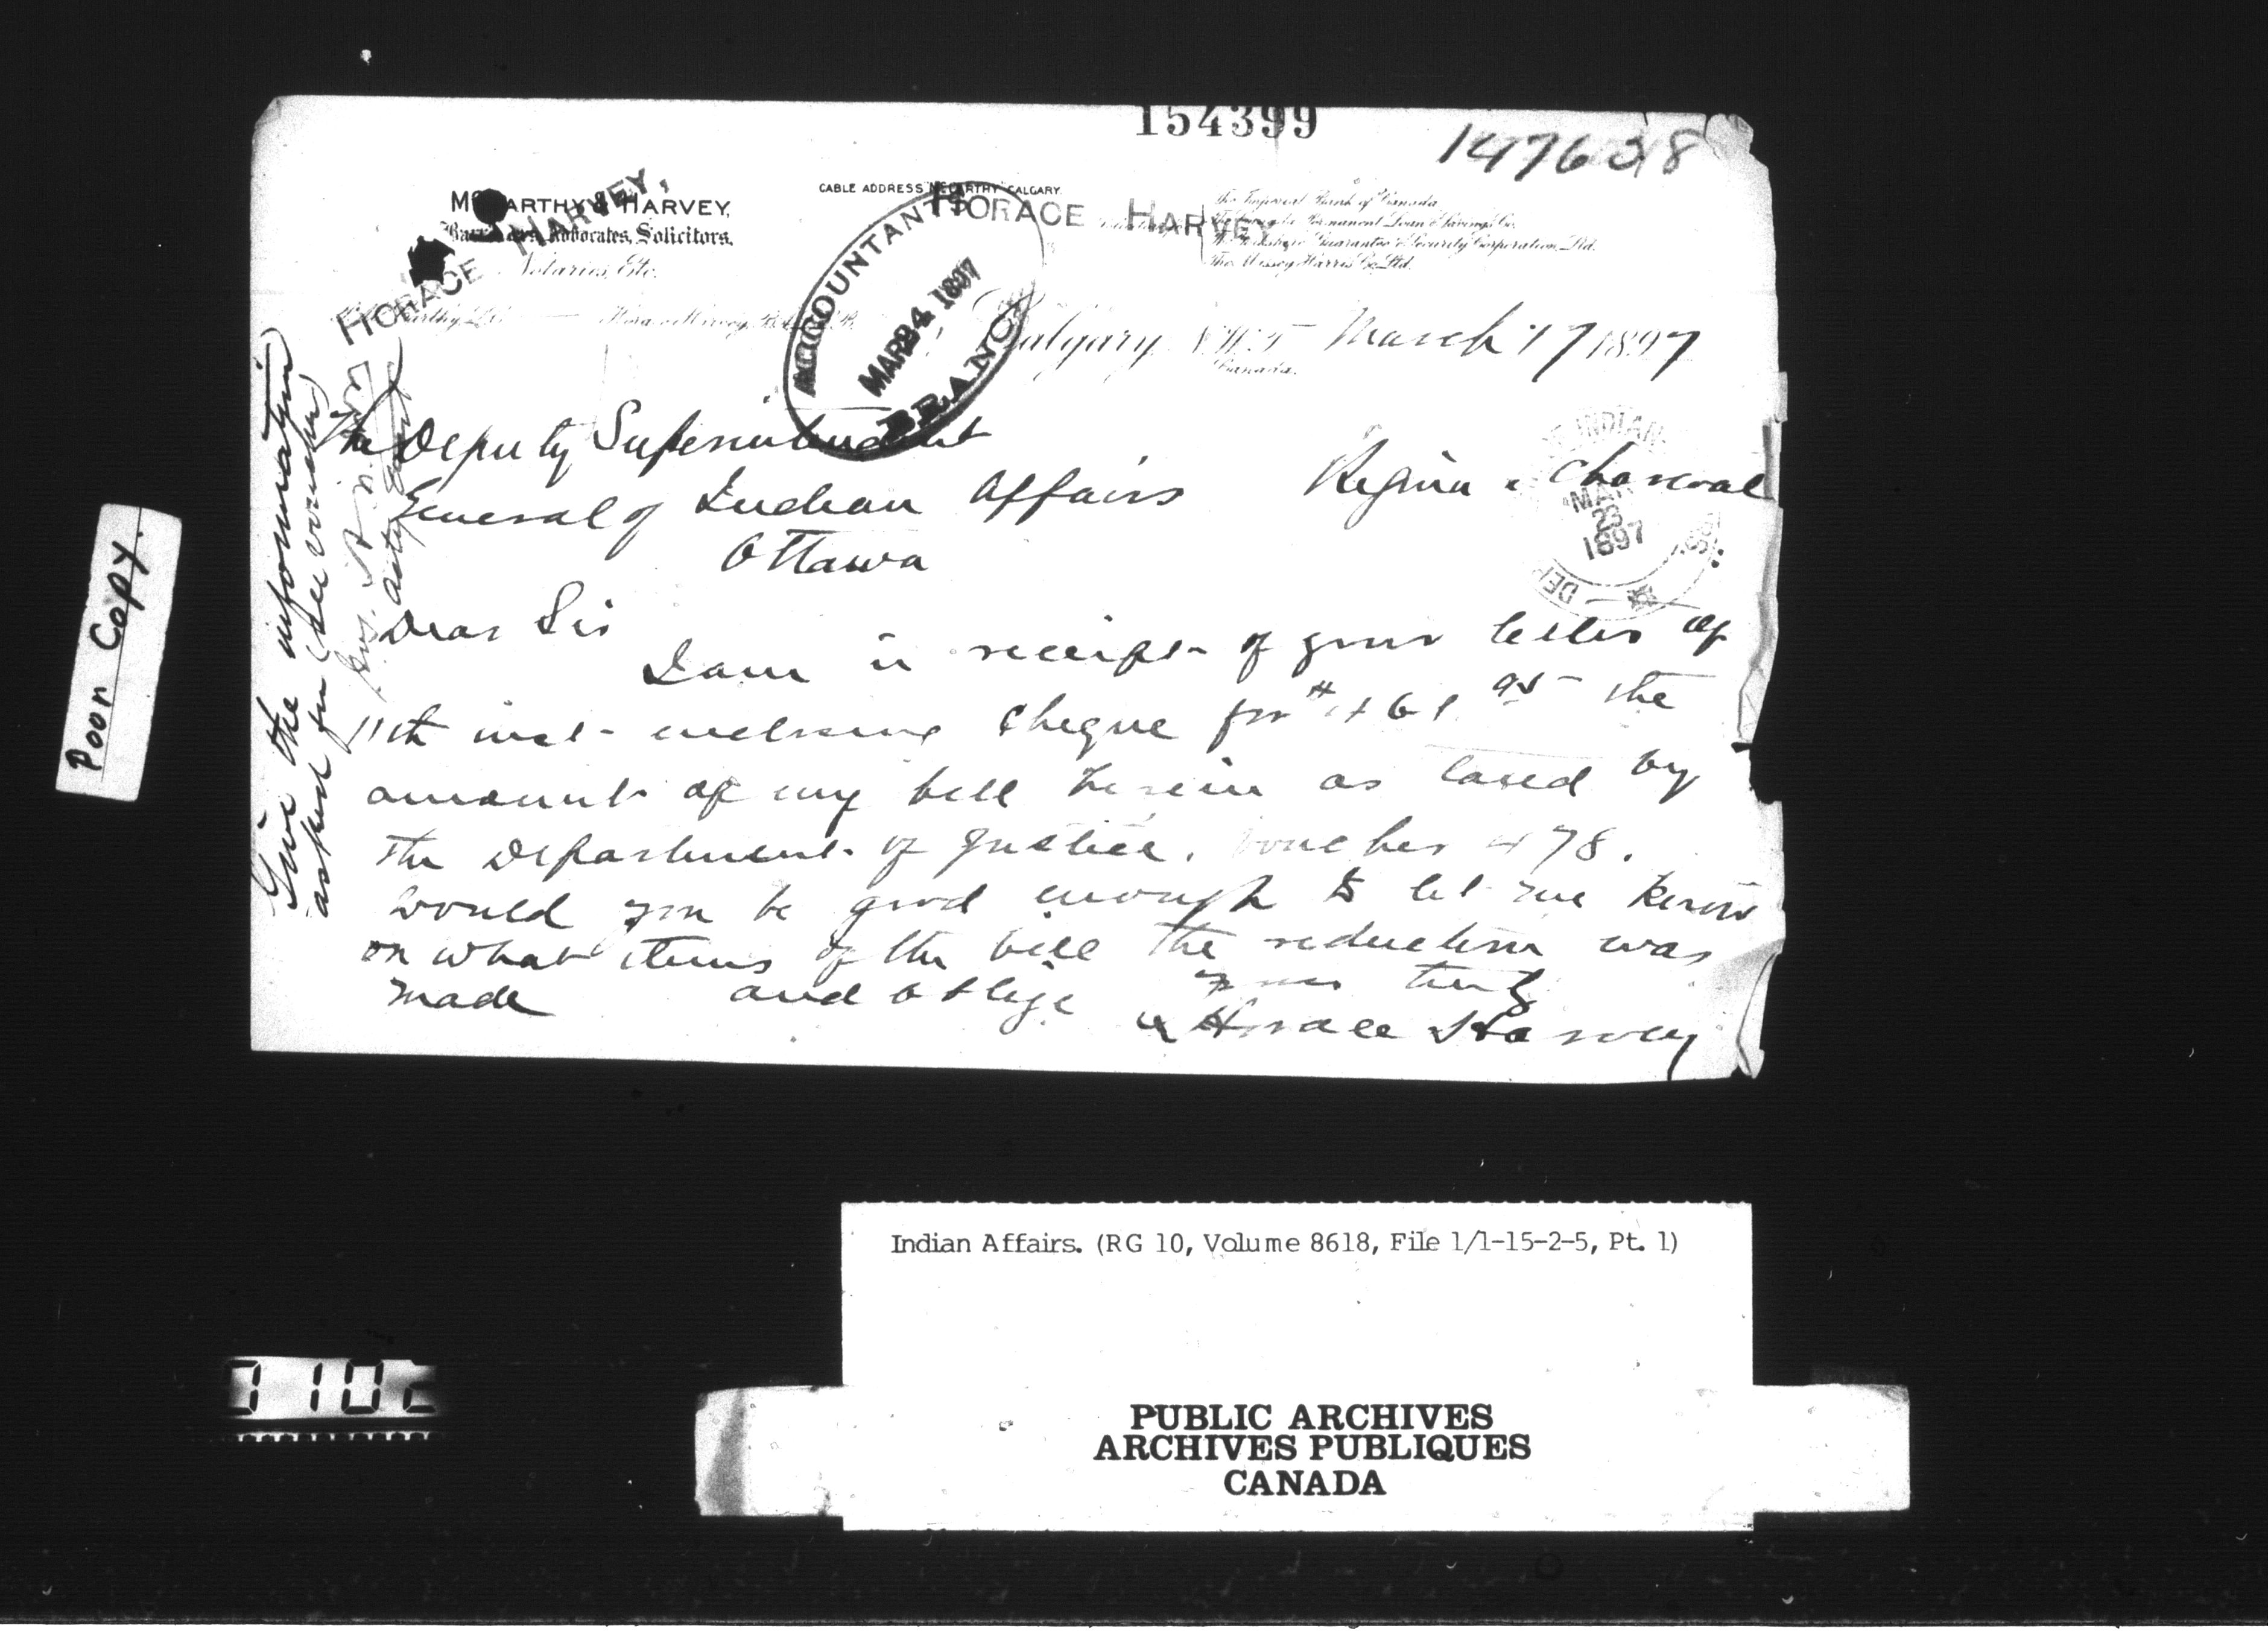 154399
147638
McCARTHY & HARVEY,
Barristers, Advocates, Solicitors,
Notaries, Etc.
HORACE HARVEY,
CABLE ADDRESS "McCARTHY" CALGARY.
HORACE HARVEY
The Imperial Bank of Canada
Permanent Loan & Savings Co.
Guarantee & Security Corporation, Ltd.
The Massey Harris Co. Ltd.
ACCOUNTANT'S
MAR 24 1897
BRANCH
Calgary, N.W.T. March 17 1897
Canada.
The Deputy Superintendent
General of Indian Affairs
Ottawa
Regina v Charcoal
INDIAN
MAR
23
1897
DEP
Dear Sir
I am in receipt of your letter of
11th inst. enclosing cheque for $ the
amount of my bill herein as taxed by
the Department of Justice. Voucher 478.
Would you be good enough to let me know
on what items of the bill the reduction was
made and oblige
Yours truly
Horace Harvey
Give the information
asked for (see voucher)
Poor Copy.
Indian Affairs. (RG 10, Volume 8618, File 1/1-15-2-5, Pt. 1)
PUBLIC ARCHIVES
ARCHIVES PUBLIQUES
CANADA